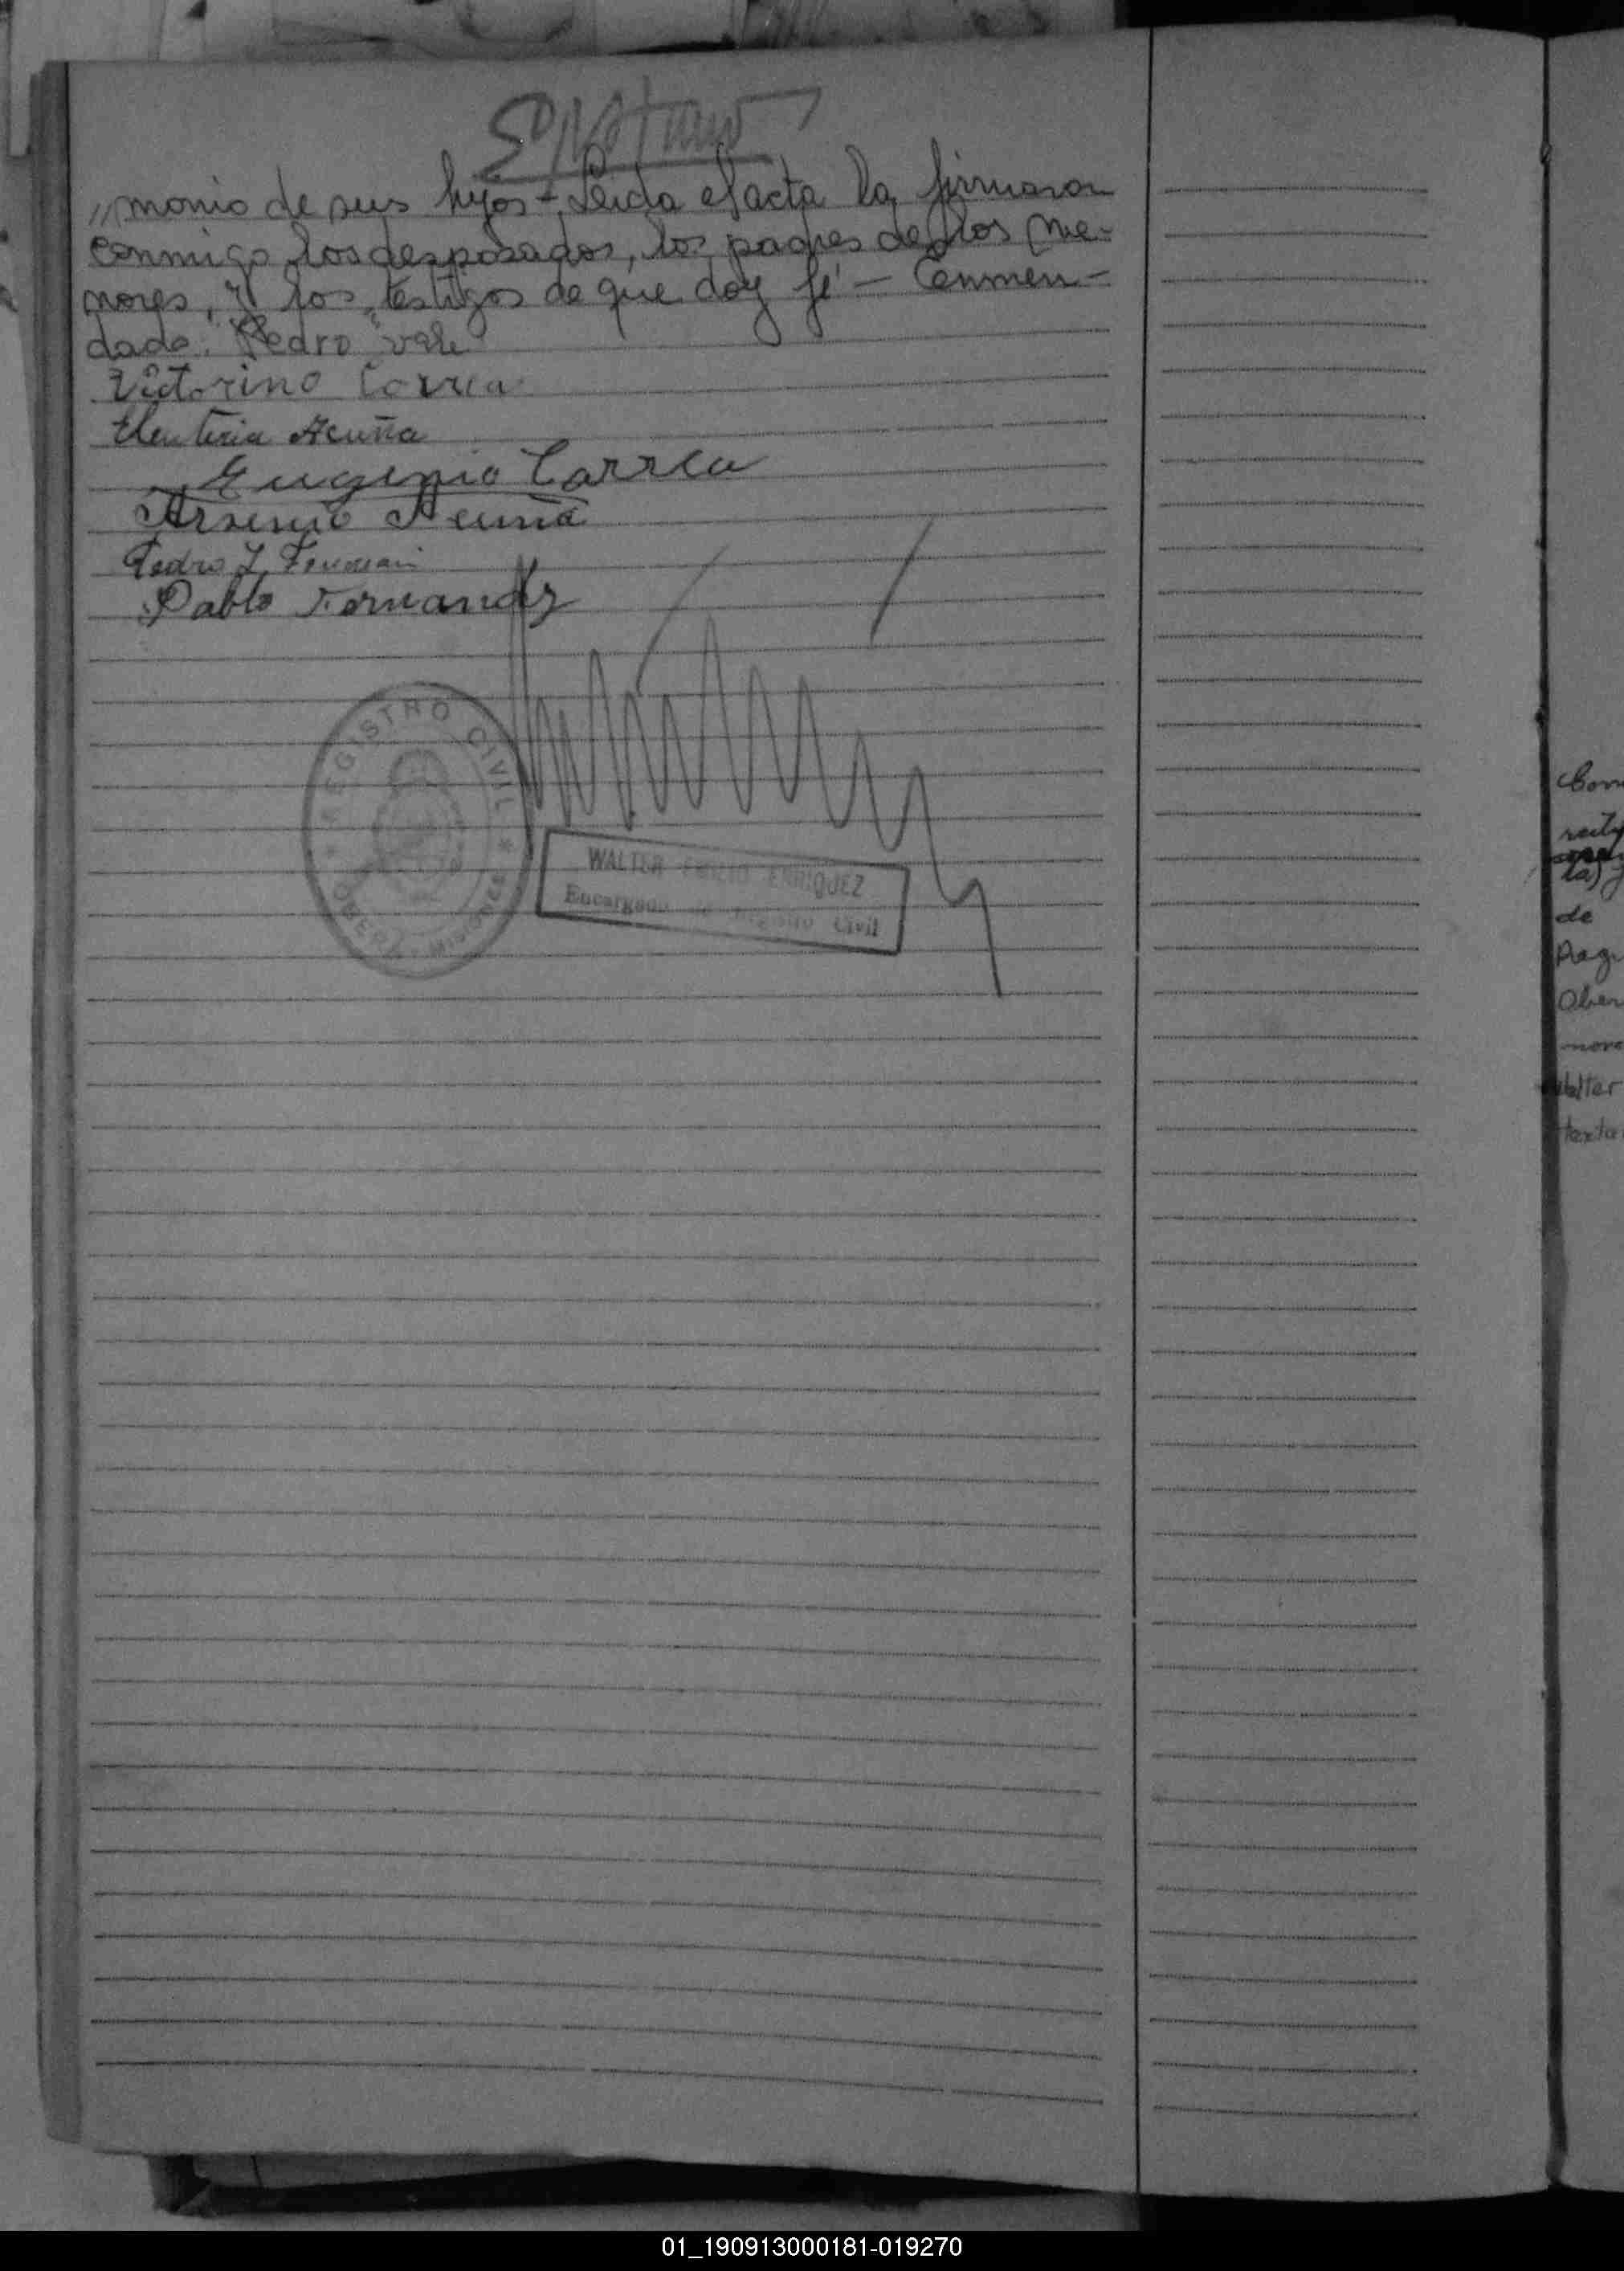 „monio de sus hijos - Leida el acta la firmaron
conmigo los desposados, los padres de los me-
nores, y los testigos de que doy fé — Enmen-
dado: "Pedro" vale
Victorino Correa
Eleuteria Acuña
Eugenio Correa
Arsenio Acuña
Pedro
Pablo Fernandez
REGISTRO CIVIL
OBERÁ - MISIONES
WALTER EMILIO ENRIQUEZ
Encargado de Registro Civil
de
01_190913000181-019270